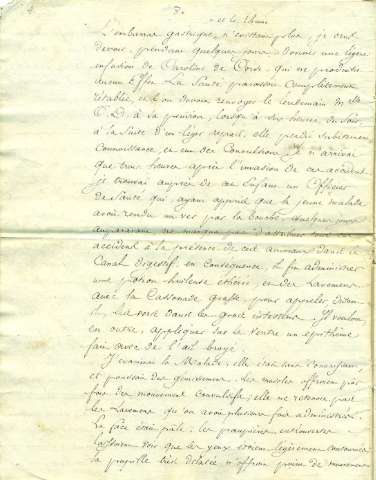 L'embarras gastrique, n'existant plus, je crus
devoir, pendant quelques jours donner une légère
infusion de Coraline de Corse, qui ne produisit
aucun Effet. La Santé paraissait complètement
rétablie, et l'on devait renvoyer le lendemain M.elle
C. D. à sa pension, lorsqu'à six heures du soir
à la suite d'un léger repas, elle perdit subitement
connaissance, et eut des Convulsions. Je n'arrivai
que trois heures après l'invasion de cet accident
je trouvai auprès de cet Enfant, un Officier
de Santé qui, ayant appris que la jeune malade
avait rendu un ver par la bouche, quelques jours
auparavant, ne manqua pas d'attribuer
accident à la présence de cet animal dans le
Canal digestif. en conséquence, il fit administrer
une potion huileuse éthérée, et des Lavements
avec la Cassonade grasse, pour appeler
les vers dans les gros intestins. Il voulut
en outre, appliquer sur le ventre un épithème
fait avec de l'ail broyé.
J'examinai la Malade; elle était sans Connaissance
et poussait des gémissements. Les muscles offraient par
fois des mouvements convulsifs; elle ne rendait pas
les Lavements qu'on avait plusieurs fois administrés.
La face était pâle; les paupières entrouvertes
laissaient voir que les yeux étaient légèrement
la pupille très dilatée n'offrait point de mouvement